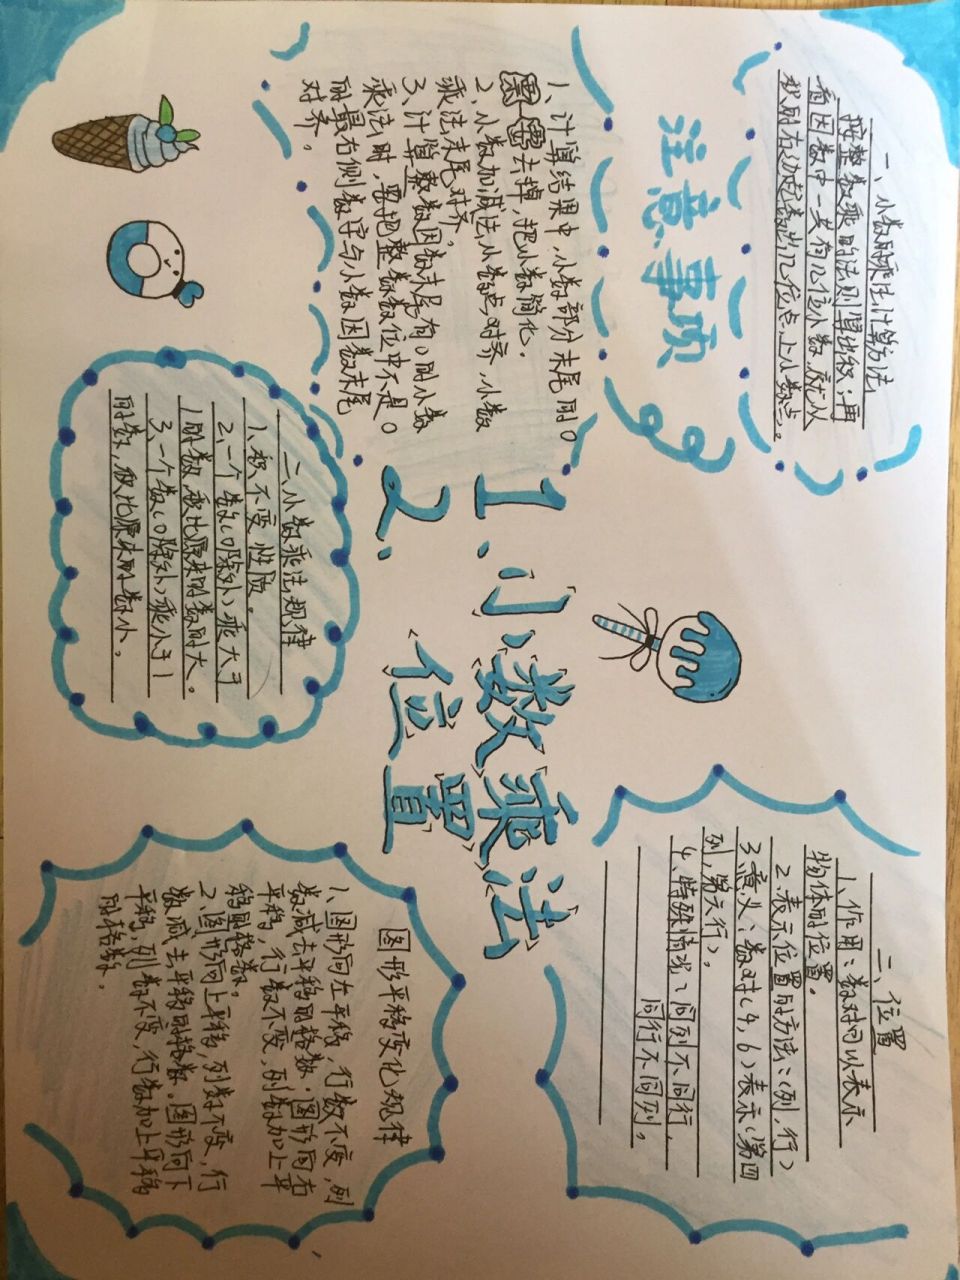 一、小数的乘法计算方法
按整数乘的法则算出积,再
看因数中一共有几位小数,就从
积的右边起数出几位点上小数点。
注意事项
1、计算结果中,小数部分末尾的0
要去掉,把小数简化。
2、小数加减法,小数点对齐,小数
乘法末尾对齐。
3、计算整数因数末尾有0时小数
乘法时,要把整数数位中不是0
的最右侧数字与小数因数末尾
对齐。
1、小数乘法
2、位置
二、小数乘法规律
1、积不变性质。
2、一个数(0除外)乘大于
1的数,积比原来的数的大。
3、一个数(0除外)乘小于1
的数,积比原来的数小。
二、位置
1、作用:数对可以表示
物体的位置。
2、表示位置的方法:(列,行)
3、意义:数对(4,6)表示(第四
列,第六行)。
4、特殊情况:同列不同行,
同行不同列。
图形平移变化规律
1、图形向左平移,行数不变,列
数减去平移的格数。图形向右
平移,行数不变,列数加上平
移的格数。
2、图形向上平移,列数不变,行
数减去平移的格数。图形向下
平移,列数不变,行数加上平移
的格数。